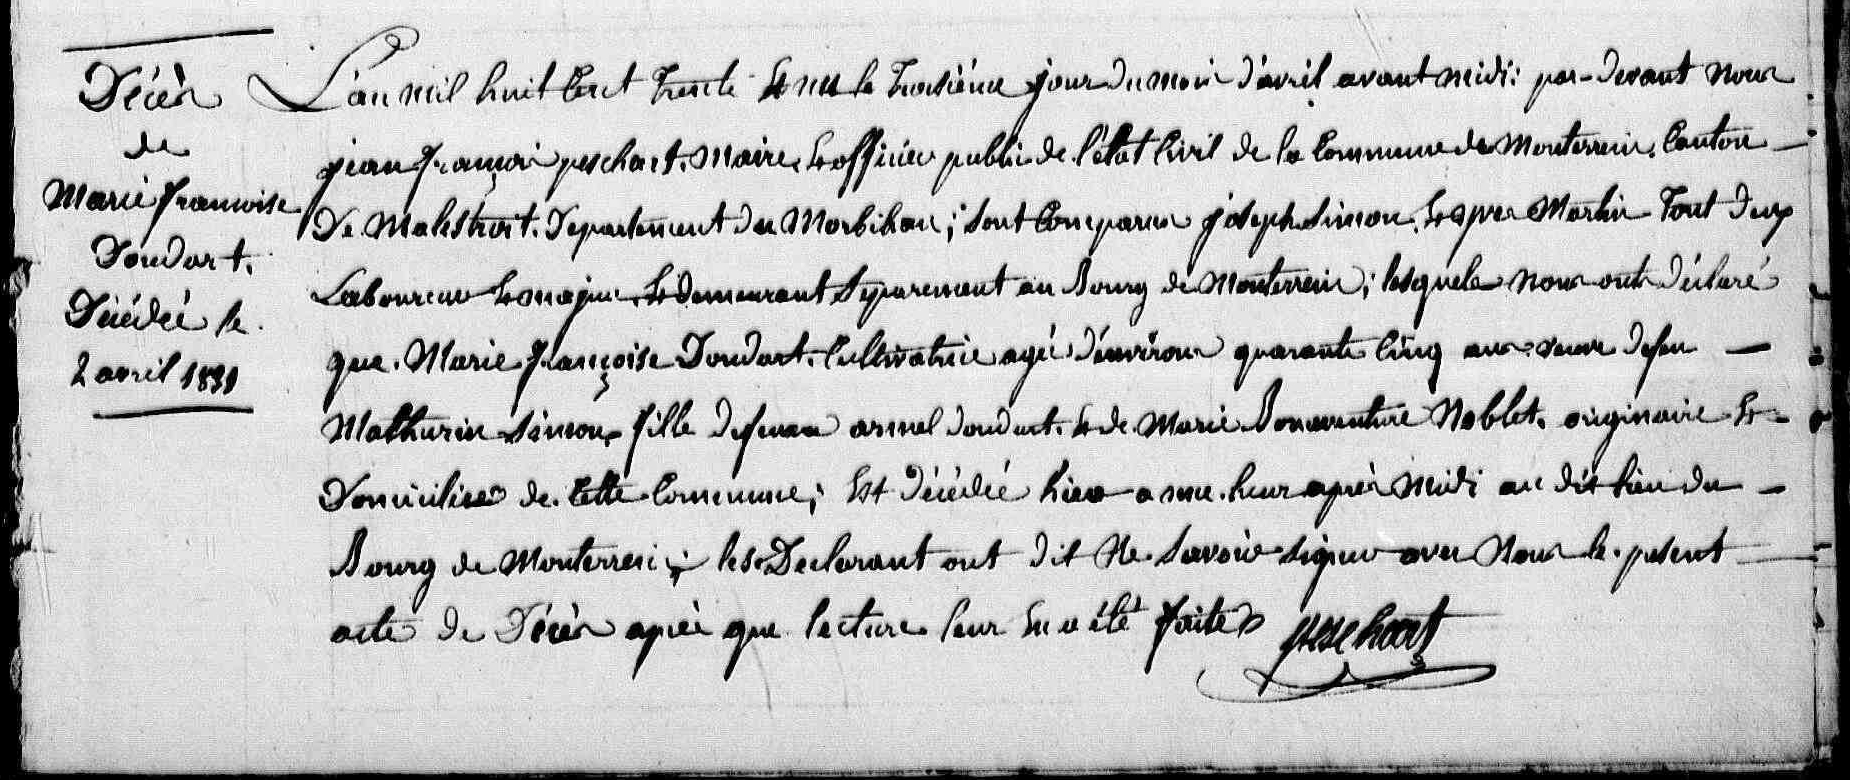 Décès
de
Marie francoise
Doudart.
Décédée le
2 avril 1831
L'an mil huit Cent Trente Et un le Troisiéme jour du mois d'avril avant midi; par-devant Nous
jean françois peschart. Maire, Et officier public de l'état Civil de la Commune de Monterrein, Canton
De Malestroit. Departement du Morbihan; sont Comparus joseph Simon. Et yves Martin Tout deux
Laboureur Et majeur, Et demeurant Separement au Bourg de Monterrein; lesquels Nous ont déclaré
que. Marie françoise Doudart. Cultivatrice agée d'environ quarante Cinq ans veuve defeu
Mathurin Simon, fille defeux armel doudart. Et de Marie Bonaventure Noblet. originaire Et
Domiciliée de. Cette Commune; Est décédée hier a une heur après Midi au dit lieu du
Bourg de Monterrein; les Declarant ont dit Ne Savoir signer avec Nous le. présent
acte de Décès après que lecture leur En a été faite peschart